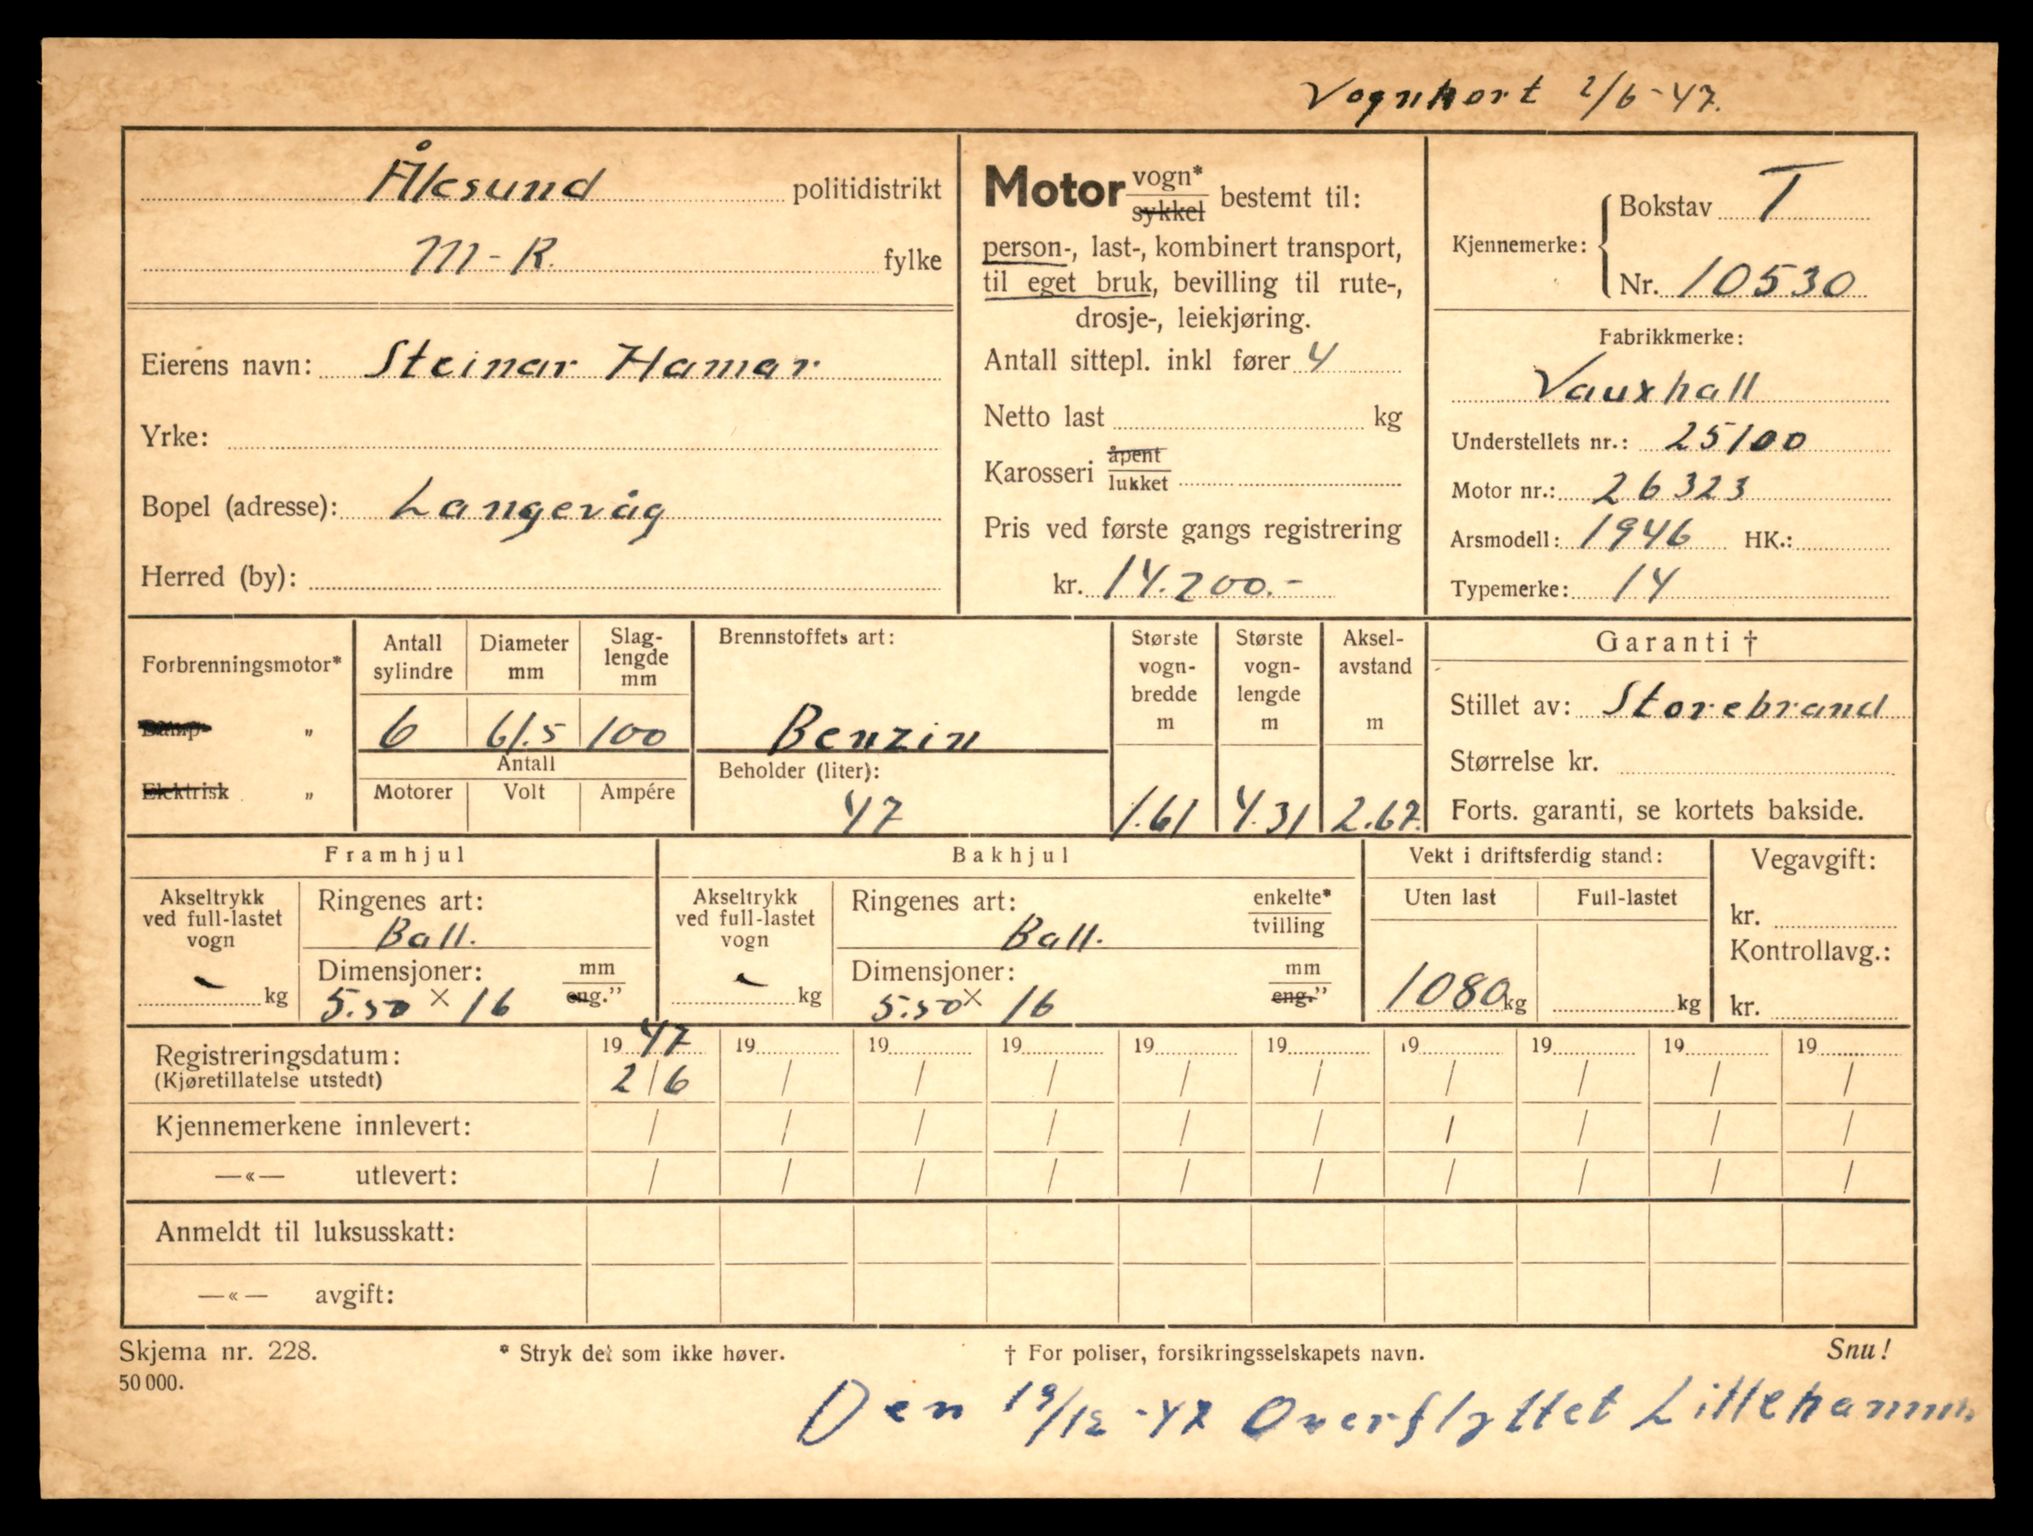 Vognkort 2/6-47.
Ålesund politidistrikt
M-R. fylke
Eierens navn: Steinar Hamar
Yrke:
Bopel (adresse): Langevåg
Herred (by):
Motor vogn* sykkel bestemt til:
person-, last-, kombinert transport,
til eget bruk, bevilling til rute-,
drosje-, leiekjøring.
Antall sittepl. inkl fører 4
Netto last kg
Karosseri åpent lukket
Pris ved første gangs registrering
kr. 14.200.-
Kjennemerke: Bokstav T
Nr. 10530
Fabrikkmerke:
Vauxhall
Understellets nr.: 25100
Motor nr.: 26323
Arsmodell: 1946 HK.:
Typemerke: 14
Forbrenningsmotor*
Damp "
Elektrisk "
Antall sylindre
6
Diameter mm
61.5
Slaglengde mm
100
Antall
Motorer Volt Ampére
Brennstoffets art:
Benzin
Beholder (liter):
47
Største vognbredde m
1.61
Største vognlengde m
4.31
Akselavstand m
2.67.
Garanti †
Stillet av: Storebrand
Størrelse kr.
Forts. garanti, se kortets bakside.
Framhjul
Akseltrykk ved full-lastet vogn
- kg
Ringenes art:
Ball.
Dimensjoner: mm eng."
5.50 x 16
Bakhjul
Akseltrykk ved full-lastet vogn
- kg
Ringenes art: enkelte* tvilling
Ball.
Dimensjoner: mm eng."
5.50 x 16
Vekt i driftsferdig stand:
Uten last Full-lastet
1080 kg kg
Vegavgift:
kr.
Kontrollavg.:
kr.
Registreringsdatum: 19 47 19 19 19 19 19 19 19 19 19
(Kjøretillatelse utstedt) 2/6 / / / / / / / / /
Kjennemerkene innlevert: / / / / / / / / / /
—«— utlevert: / / / / / / / / / /
Anmeldt til luksusskatt:
—«— avgift:
Skjema nr. 228. * Stryk det som ikke høver. † For poliser, forsikringsselskapets navn. Snu!
50 000.
Den 19/12-47 Overflyttet Lillehammer